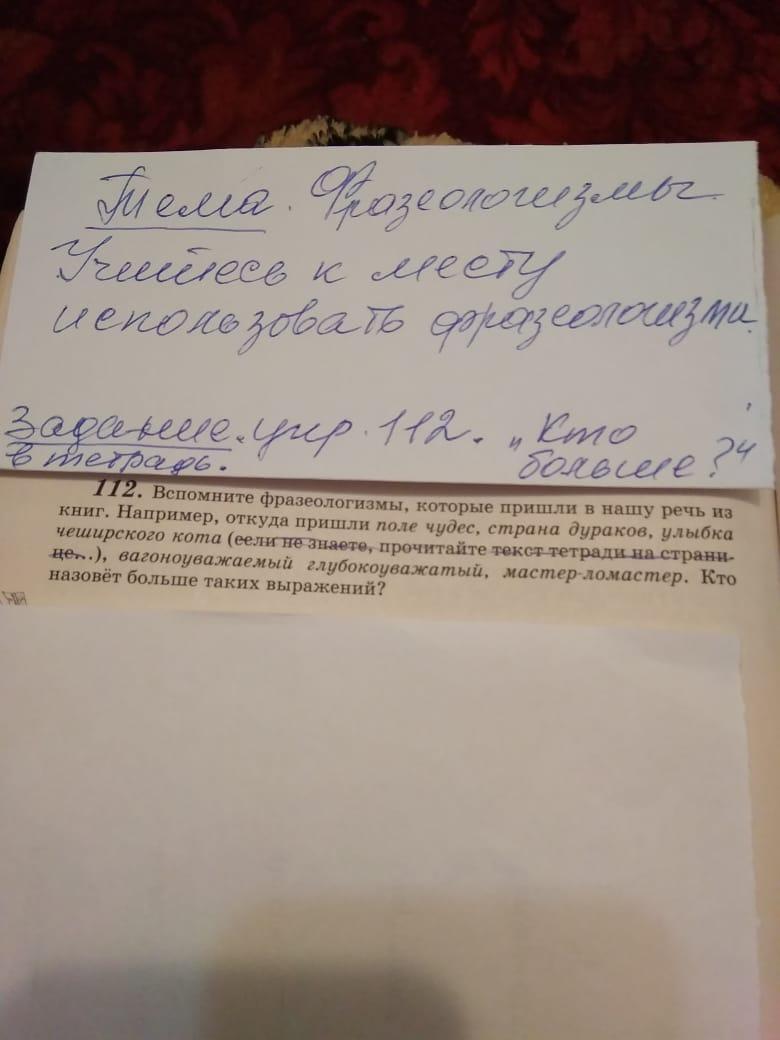 Тема. Фразеологизмы.
Учитесь к месту
использовать фразеологизмы.
Задание. упр. 112. „Кто
в тетрадь. больше?“
112. Вспомните фразеологизмы, которые пришли в нашу речь из
книг. Например, откуда пришли поле чудес, страна дураков, улыбка
чеширского кота (если не знаете, прочитайте текст тетради на страни-
це...), вагоноуважаемый глубокоуважатый, мастер-ломастер. Кто
назовёт больше таких выражений?